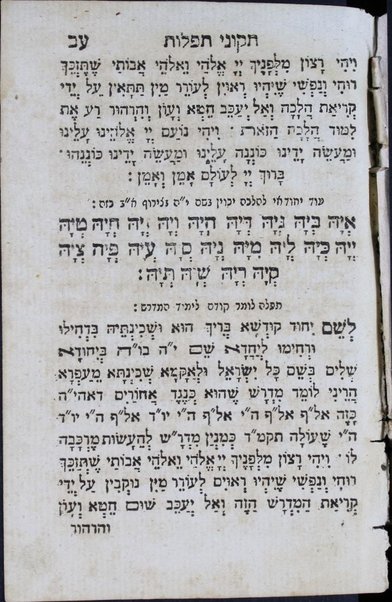 תקוני תפלות עב
ויהי רצון מלפניך יי אלהי ואלהי אבותי שתזכך
רוחי ונפשי שיהיו ראוין לעורר מין תתאין על ידי
קריאת הלכה ואל יעכב חטא ועון והרהור רע את
למוד הלכת הזאות · ויהי נועם יי אלהינו עלינו
ומעשה ידינו כוננה עלינו ומעשה ידינו כוננהו
ברוך יי לעולם אמן ואמן :
עוד יחודאי להלכה יכוין בשם י״ה בלירוף א״ב כזה :
איה ביה גיה דיה היה ויה זיה חיה טיה
ייה כיה ליה מיה ניה סיה עיה פיה ציה
קיה ריה שיה תיה :
תפלה לומר קודם לימוד המדרש :
לשם יחוד קודשא בריך הוא ושכינתיה בדחילו
ורחימו ליחדא שם י״ה בו״ה ביחודא
שלים בשם כל ישראל ולאקמא שכינתא מעפרא
הריני לומד מדרש שהוא כנגד אחורים דאהי״ה
כזה אל״ף אל״ף ה״י אל״ף ה״י יו״ד אל״ף ה״י יו״ד
ה״י שעולה תקמ״ד כמנין מדר״ש להעשות מרכבה
לו · ויהי רצון מלפניך יי אלהי ואלהי אבותי שתזכך
רוחי ונפשי שיהיו ראוים לעורר מין נוקבין על ידי
קריאת המדרש הזה ואל יעכב שום חטא ועון
והרהור